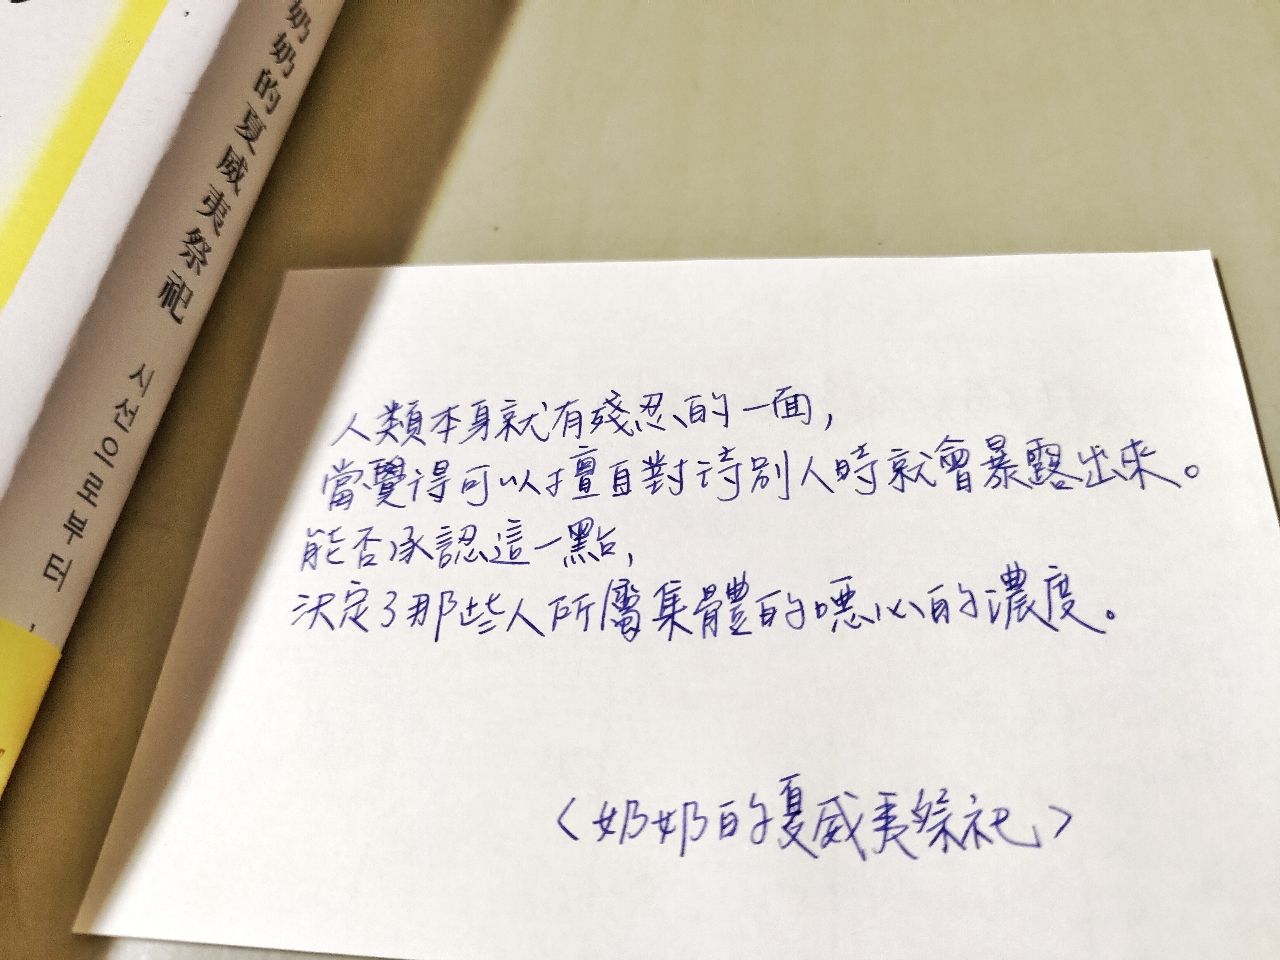 奶奶的夏威夷祭祀
시선으로부터,
人類本身就有殘忍的一面,
當覺得可以擅自對待別人時就會暴露出來。
能否承認這一點,
決定了那些人所屬集體的噁心的濃度。
〈奶奶的夏威夷祭祀〉